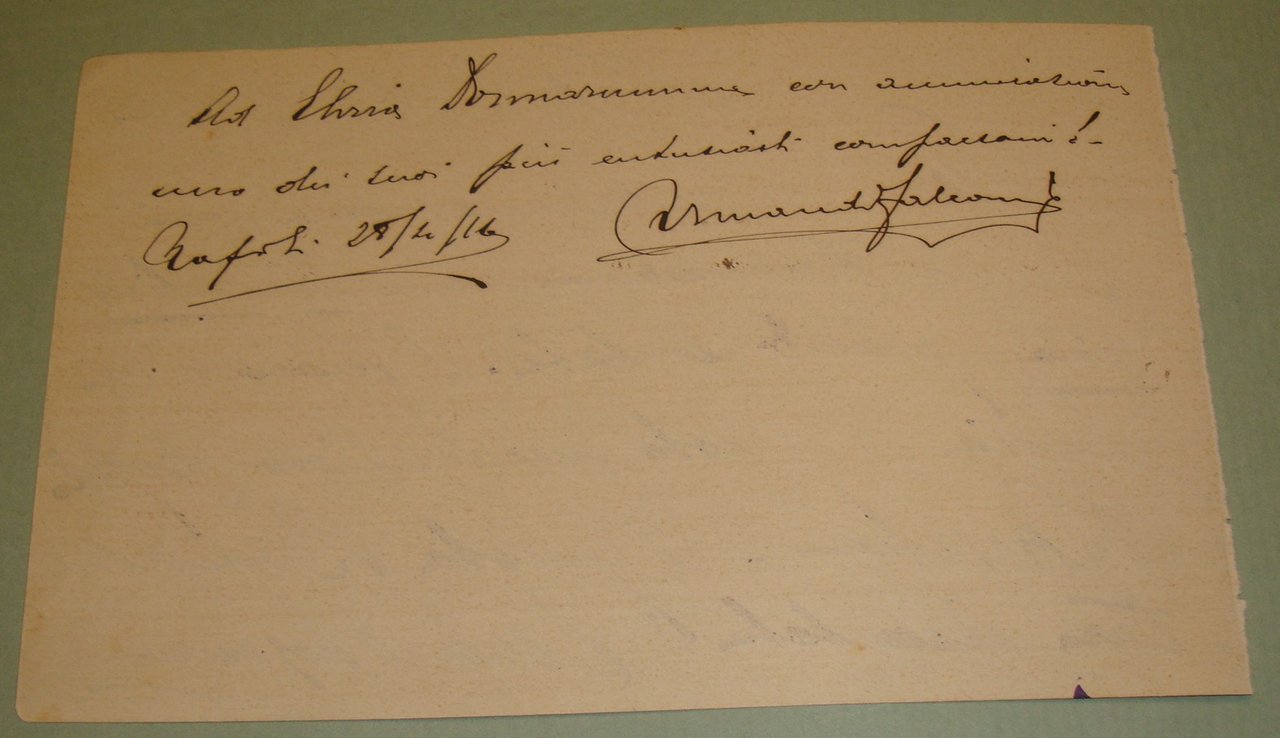 Ad Elvira Donnarumma con ammirazione
uno dei suoi più entusiasti compaesani!-
Napoli 28/4/16 Armando Falconi